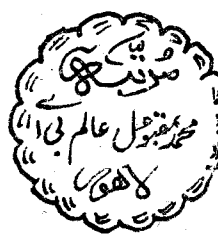 مرتبہ
محمد مقبول عالم بی اے
لاہور